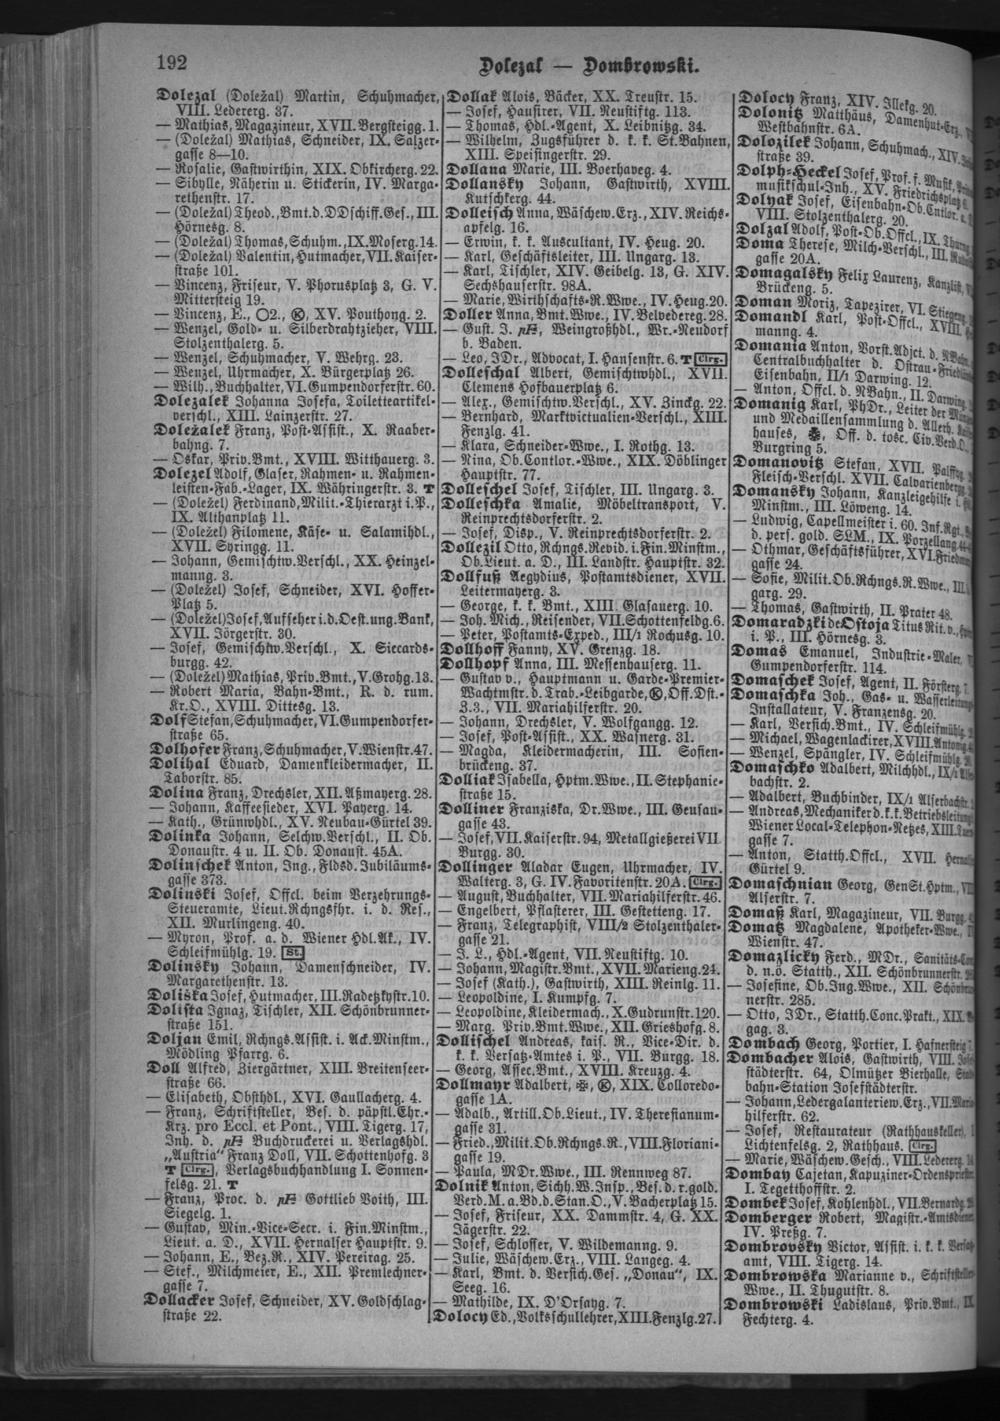 192
Dolezal — Dombrowski.
Dolezal (Doležal) Martin, Schuhmacher,
VIII. Lederorg. 37.
— Mathias, Magazineur, XVII. Bergsteigg. 1.
— (Doležal) Mathias, Schneider, IX. Salzer-
gasse 8—10.
— Rosalie, Gastwirthin, XIX. Obkircherg. 22.
— Sibylle, Näherin u. Stickerin, IV. Marga-
rethenstr. 17.
— (Doležal) Theod., Bmt. d. DDschiff. Ges., III.
Hörnesg. 8.
— (Doležal) Thomas, Schuhm., IX. Moserg. 14.
— (Doležal) Valentin, Hutmacher, VII. Kaiser-
straße 101.
— Vincenz, Friseur, V. Phorusplatz 3, G. V.
Mittersteig 19.
— Vincenz, E., ○2., Ⓚ, XV. Pouthong. 2.
— Wenzel, Gold- u. Silberdrahtzieher, VIII.
Stolzenthalerg. 5.
— Wenzel, Schuhmacher, V. Wehrg. 23.
— Wenzel, Uhrmacher, X. Bürgerplatz 26.
— Wilh., Buchhalter, VI. Gumpendorferstr. 60.
Dolezalek Johanna Josefa, Toiletteartikel-
verschl., XIII. Lainzerstr. 27.
Doležalek Franz, Post-Assist., X. Raaber-
bahng. 7.
— Oskar, Priv. Bmt., XVIII. Witthauerg. 3.
Dolezel Adolf, Glaser, Rahmen- u. Rahmen-
leisten-Fab.-Lager, IX. Währingerstr. 3. T
— (Doležel) Ferdinand, Milit.-Thierarzt i. P.,
IX. Althanplatz 11.
— (Doležel) Filomene, Käse- u. Salamihdl.,
XVII. Syringg. 11.
— Johann, Gemischtw. Verschl., XX. Heinzel-
manng. 3.
— (Doležel) Josef, Schneider, XVI. Hoffer-
Platz 5.
— (Doležel) Josef, Aufseher i. d. Oest. ung. Bank,
XVII. Jörgerstr. 30.
— Josef, Gemischtw. Verschl., X. Siccards-
burgg. 42.
— (Doležel) Mathias, Priv. Bmt., V. Grohg. 13.
— Robert Maria, Bahn-Bmt., R. d. rum.
Kr. O., XVIII. Dittesg. 13.
Dolf Stefan, Schuhmacher, VI. Gumpendorfer-
straße 65.
Dolhofer Franz, Schuhmacher, V. Wienstr. 47.
Dolihal Eduard, Damenkleidermacher, II.
Taborstr. 85.
Dolina Franz, Drechsler, XII. Aßmayerg. 28.
— Johann, Kaffeesieder, XVI. Payerg. 14.
— Kath., Grünwhdl., XV. Neubau-Gürtel 39.
Dolinka Johann, Selchw. Verschl., II. Ob.
Donaustr. 4 u. II. Ob. Donaust. 45A.
Dolinschek Anton, Ing., Fldsd. Jubiläums-
gasse 373.
Dolinski Josef, Offcl. beim Verzehrungs-
Steueramte, Lieut. Rchngsfhr. i. d. Res.,
XII. Murlingeng. 40.
— Myron, Prof. a. d. Wiener Hdl. Ak., IV.
Schleifmühlg. 19. St.
Dolinsky Johann, Damenschneider, IV.
Margarethenstr. 13.
Doliška Josef, Hutmacher, III. Radetzkystr. 10.
Dolista Ignaz, Tischler, XII. Schönbrunner-
straße 151.
Doljan Emil, Rchngs. Assist. i. Ack. Minstm.,
Mödling Pfarrg. 6.
Doll Alfred, Ziergärtner, XIII. Breitenseer-
straße 66.
— Elisabeth, Obsthdl., XVI. Gaullacherg. 4.
— Franz, Schriftsteller, Bes. d. päpstl. Ehr.-
Krz. pro Eccl. et Pont., VIII. Tigerg. 17,
Inh. d. pH Buchdruckerei u. Verlagshdl.
„Austria“ Franz Doll, VII. Schottenhofg. 3
T Clrg., Verlagsbuchhandlung I. Sonnen-
felsg. 21. T
— Franz, Proc. d. pH Gottlieb Voith, III.
Siegelg. 1.
— Gustav, Min.-Vice-Secr. i. Fin. Minstm.,
Lieut. a. D., XVII. Hernalser Hauptstr. 9.
— Johann, E., Bez. R., XIV. Pereirag. 25.
— Stef., Milchmeier, E., XII. Premlechner-
gasse 7.
Dollacker Josef, Schneider, XV. Goldschlag-
straße 22.
Dollak Alois, Bäcker, XX. Treustr. 15.
— Josef, Hausirer, VII. Neustiftg. 113.
— Thomas, Hdl.-Agent, X. Leibnitzg. 34.
— Wilhelm, Zugsführer d. k. k. St. Bahnen,
XIII. Speisingerstr. 29.
Dollana Marie, III. Boerhaveg. 4.
Dollansky Johann, Gastwirth, XVIII.
Kutschkerg. 44.
Dolleisch Anna, Wäschew. Erz., XIV. Reichs-
apfelg. 16.
— Erwin, k. k. Auscultant, IV. Heug. 20.
— Karl, Geschäftsleiter, III. Ungarg. 13.
— Karl, Tischler, XIV. Geibelg. 13, G. XIV.
Sechshauserstr. 98A.
— Marie, Wirthschafts-R. Wwe., IV. Heug. 20.
Doller Anna, Bmt. Wwe., IV. Belvedereg. 28.
— Gust. J. pH, Weingroßhdl., Wr.-Neudorf
b. Baden.
— Leo, JDr., Advocat, I. Hansenstr. 6. T Clrg.
Dolleschal Albert, Gemischtwhdl., XVII.
Clemens Hofbauerplatz 6.
— Alex., Gemischtw. Verschl., XV. Zinckg. 22.
— Bernhard, Marktvictualien-Verschl., XIII.
Fenzlg. 41.
— Klara, Schneider-Wwe., I. Rothg. 13.
— Nina, Ob. Contlor.-Wwe., XIX. Döblinger
Hauptstr. 77.
Dolleschel Josef, Tischler, III. Ungarg. 3.
Dolleschka Amalie, Möbeltransport, V.
Reinprechtsdorferstr. 2.
— Josef, Disp., V. Reinprechtsdorferstr. 2.
Dollezil Otto, Rchngs. Revid. i. Fin. Minstm.,
Ob. Lieut. a. D., III. Landstr. Hauptstr. 32.
Dollfuß Aegydius, Postamtsdiener, XVII.
Leitermayerg. 3.
— George, k. k. Bmt., XIII. Glasauerg. 10.
— Joh. Mich., Reisender, VII. Schottenfeldg. 6.
— Peter, Postamts-Exped., III/1 Rochusg. 10.
Dollhoff Fanny, XV. Grenzg. 18.
Dollhopf Anna, III. Messenhauserg. 11.
— Gustav v., Hauptmann u. Garde-Premier-
Wachtmstr. d. Trab.-Leibgarde, Ⓚ, Off. Dst.-
Z. 3., VII. Mariahilferstr. 20.
— Johann, Drechsler, V. Wolfgangg. 12.
— Josef, Post-Assist., XX. Wasnerg. 31.
— Magda, Kleidermacherin, III. Sofien-
brückeng. 37.
Dolliak Isabella, Hptm. Wwe., II. Stephanie-
straße 15.
Dolliner Franziska, Dr. Wwe., III. Geusau-
gasse 43.
— Josef, VII. Kaiserstr. 94, Metallgießerei VII
Burgg. 30.
Dollinger Aladar Eugen, Uhrmacher, IV.
Walterg. 3, G. IV. Favoritenstr. 20A. Clrg.
— August, Buchhalter, VII. Mariahilferstr. 46.
— Engelbert, Pflasterer, III. Gestetteng. 17.
— Franz, Telegraphist, VIII/2 Stolzenthaler-
gasse 21.
— J. L., Hdl.-Agent, VII. Neustiftg. 10.
— Johann, Magistr. Bmt., XVII. Marieng. 24.
— Josef (Kath.), Gastwirth, XIII. Reinlg. 11.
— Leopoldine, I. Kumpfg. 7.
— Leopoldine, Kleidermach., X. Gudrunstr. 120.
— Marg. Priv. Bmt. Wwe., XII. Grieshofg. 8.
Dollischel Andreas, kais. R., Vice-Dir. d.
k. k. Versatz-Amtes i. P., VII. Burgg. 18.
— Georg, Assec. Bmt., XVIII. Kreuzg. 4.
Dollmayr Adalbert, ✠, Ⓚ, XIX. Colloredo-
gasse 1A.
— Adalb., Artill. Ob. Lieut., IV. Theresianum-
gasse 31.
— Fried., Milit. Ob. Rchngs. R., VIII. Floriani-
gasse 19.
— Paula, MDr. Wwe., III. Rennweg 87.
Dolnik Anton, Sichh. W. Insp., Bes. d. r. gold.
Verd. M. a. Bd. d. Stan. O., V. Bacherplatz 15.
— Josef, Friseur, XX. Dammstr. 4, G. XX.
Jägerstr. 22.
— Josef, Schlosser, V. Wildemanng. 9.
— Julie, Wäschew. Erz., VIII. Langeg. 4.
— Karl, Bmt. d. Versich. Ges. „Donau“, IX.
Seeg. 16.
— Mathilde, IX. D'Orsayg. 7.
Dolocy Ed., Volksschullehrer, XIII. Fenzlg. 27.
Dolocy Franz, XIV. Illekg. 20.
Dolonitz Matthäus, Damenhut-Erz.,
Westbahnstr. 6A.
Dolozilek Johann, Schuhmach., XIV.
straße 39.
Dolph-Heckel Josef, Prof. f. Musik,
musikschul-Inh., XV. Friedrichsplatz
Dolyak Josef, Eisenbahn-Ob. Contlor.
VIII. Stolzenthalerg. 20.
Dolzal Adolf, Post-Ob. Offcl., IX.
Doma Therese, Milch-Verschl., III.
gasse 20A.
Domagalsky Felix Laurenz, Kanzlist,
Brückeng. 5.
Doman Moriz, Tapezirer, VI.
Domandl Karl, Post-Offcl., XVIII.
manng. 4.
Domania Anton, Vorst. Adjct. d.
Centralbuchhalter d. Ostrau-
Eisenbahn, II/1 Darwing. 12.
— Anton, Offcl. d. NBahn., II. Darwing.
Domanig Karl, PhDr., Leiter der
und Medaillensammlung d. Allerh.
hauses, ✠, Off. d. tosc. Civ. Verd. O.
Burgring 5.
Domanovitz Stefan, XVII.
Fleisch-Verschl. XVII. Calvarienberg
Domansky Johann, Kanzleigehilfe i.
Minstm., III. Löweng. 14.
— Ludwig, Capellmeister i. 60. Inf. Rgt.,
d. pers. gold. SLM., IX. Porzellang.
— Othmar, Geschäftsführer, XVI.
gasse 24.
— Sofie, Milit. Ob. Rchngs. R. Wwe., III.
garg. 29.
— Thomas, Gastwirth, II. Prater 48.
Domaradzki de Ostoja Titus Rit. v.,
i. P., III. Hörnesg. 3.
Domas Emanuel, Industrie-Maler,
Gumpendorferstr. 114.
Domaschek Josef, Agent, II. Försterg.
Domaschka Joh., Gas- u. Wasserleitungs
Installateur, V. Franzensg. 20.
— Karl, Versich. Bmt., IV. Schleifmühlg.
— Michael, Wagenlackirer, XVIII.
— Wenzel, Spängler, IV. Schleifmühlg.
Domaschko Adalbert, Milchhdl., IX/1
bachstr. 2.
— Adalbert, Buchbinder, IX/1 Alserbachstr.
— Andreas, Mechaniker d. k. k. Betriebsleitung
Wiener Local-Telephon-Netzes, XIII.
gasse 7.
— Anton, Statth. Offcl., XVII.
Gürtel 9.
Domaschnian Georg, GenSt. Hptm.,
Alserstr. 7.
Domaß Karl, Magazineur, VII. Burgg.
Domatz Magdalene, Apotheker-Wwe.,
Wienstr. 47.
Domazlicky Ferd., MDr., Sanitäts-
d. n.ö. Statth., XII. Schönbrunnerstr.
— Josefine, Ob. Ing. Wwe., XII.
nerstr. 285.
— Otto, JDr., Statth. Conc. Prakt., XIX.
gag. 3.
Dombach Georg, Portier, I. Hafnersteig
Dombacher Alois, Gastwirth, VIII.
städterstr. 64, Olmützer Bierhalle,
bahn-Station Josefstädterstr.
— Johann, Ledergalanteriew. Erz., VII.
hilferstr. 62.
— Josef, Restaurateur (Rathhauskeller),
Lichtenfelsg. 2, Rathhaus. Clrg.
— Marie, Wäschew. Gesch., VIII. Ledererg.
Dombay Cajetan, Kapuziner-Ordenspriester
I. Tegetthoffstr. 2.
Dombek Josef, Kohlenhdl., VII. Bernardg.
Domberger Robert, Magistr.-Amtsdiener
IV. Preßg. 7.
Dombrovsky Victor, Assist. i. k. k.
amt, VIII. Tigerg. 14.
Dombrowska Marianne v.,
Wwe., II. Thugutstr. 8.
Dombrowski Ladislaus, Priv. Bmt., IX.
Fechterg. 4.